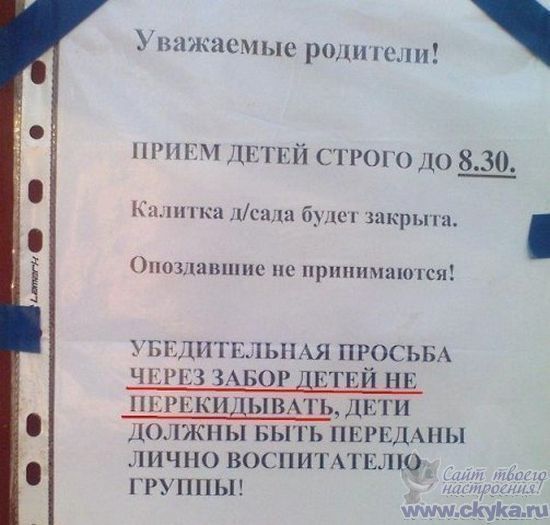 Уважаемые родители!
ПРИЕМ ДЕТЕЙ СТРОГО ДО 8.30.
Калитка д/сада будет закрыта.
Опоздавшие не принимаются!
УБЕДИТЕЛЬНАЯ ПРОСЬБА
ЧЕРЕЗ ЗАБОР ДЕТЕЙ НЕ
ПЕРЕКИДЫВАТЬ, ДЕТИ
ДОЛЖНЫ БЫТЬ ПЕРЕДАНЫ
ЛИЧНО ВОСПИТАТЕЛЮ
ГРУППЫ!
Lamark
Сайт твоего
настроения!
www.ckyka.ru